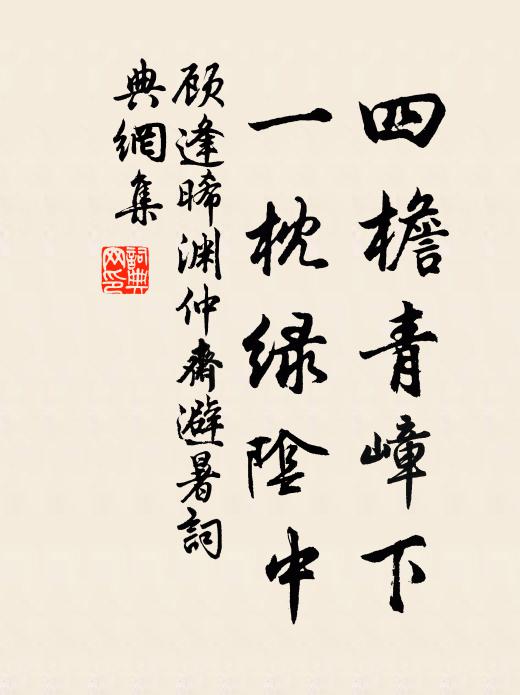 四檐青嶂下
一枕绿陰中
顾逢晞渊仲齋避暑詞
典網集
詞典
网印